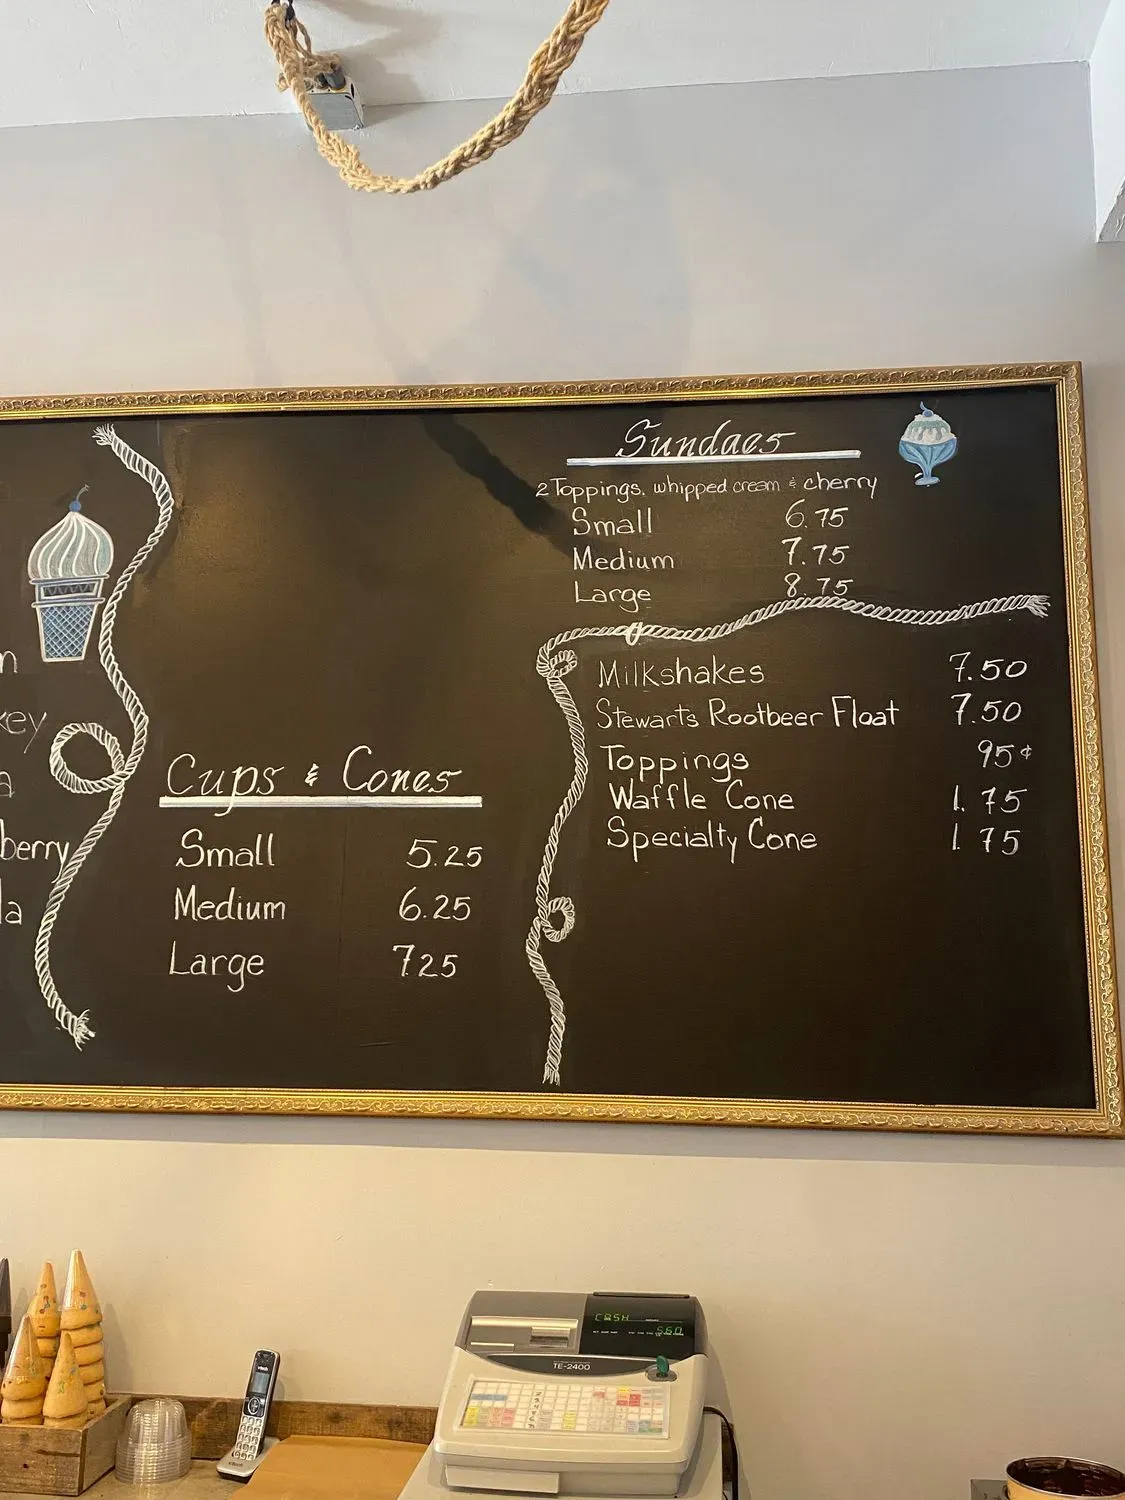 Sundaes
2 Toppings, whipped cream & cherry
Small 6.75
Medium 7.75
Large 8.75
Milkshakes 7.50
Stewarts Rootbeer Float 7.50
Toppings 95¢
Waffle Cone 1.75
Specialty Cone 1.75
Cups & Cones
Small 5.25
Medium 6.25
Large 725
n
key
a
berry
la
CASH
5.60
TE-2400
vtech